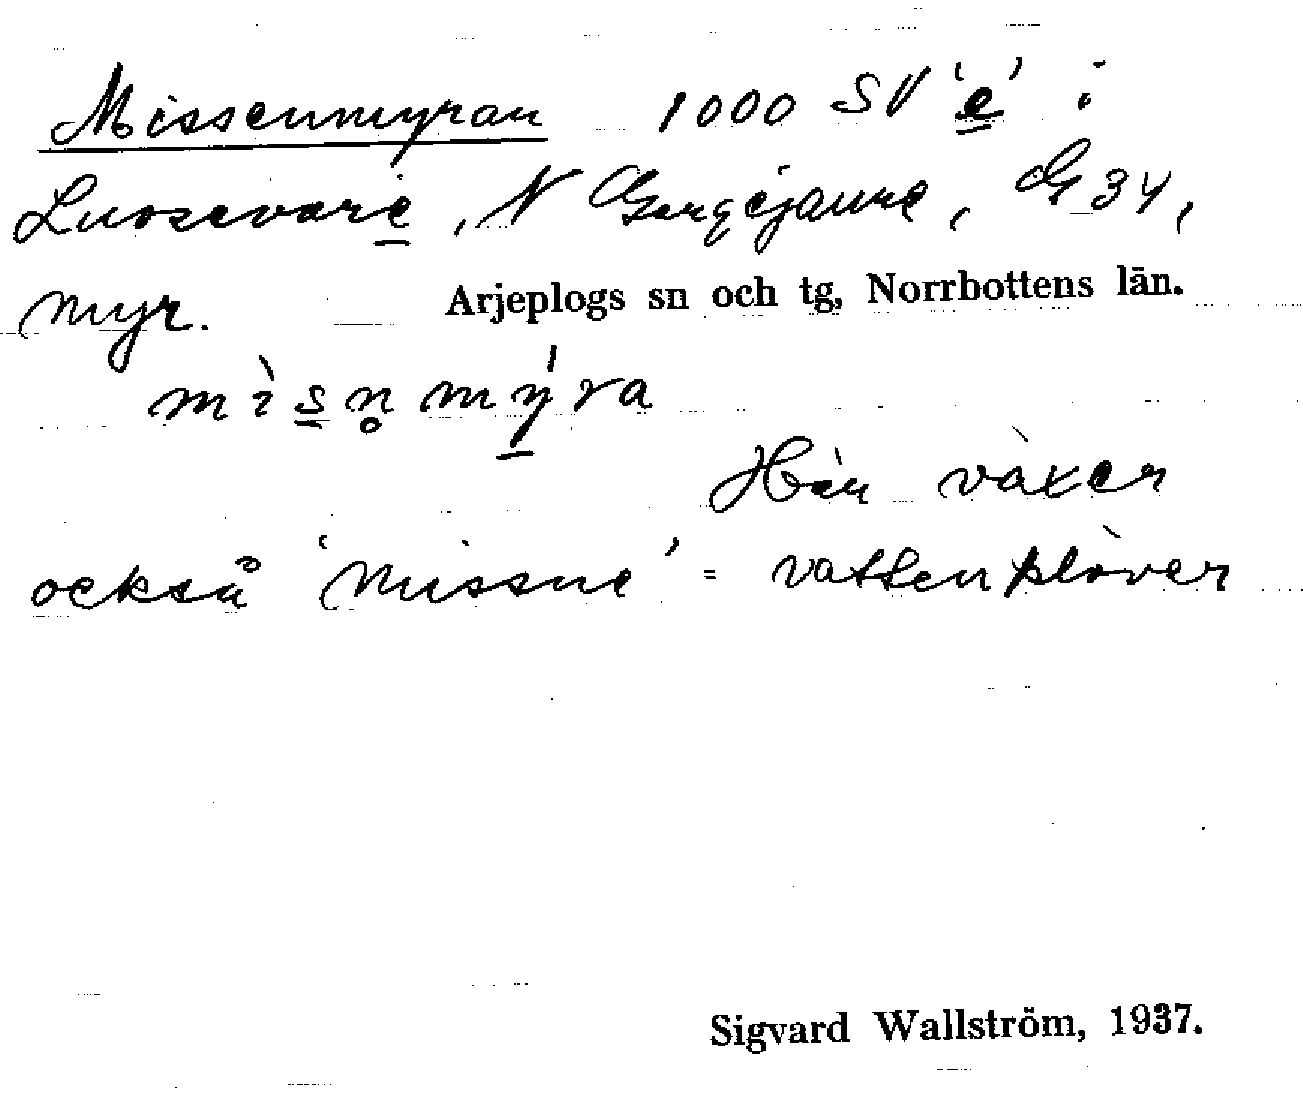 Missenmyran 1000 SV 'e' i
Luosevare, N Gergejaure, G 34,
myr. Arjeplogs sn och tg, Norrbottens län.
mìsn̥mýra
Här växer
också 'missne' = vattenklöver
Sigvard Wallström, 1937.